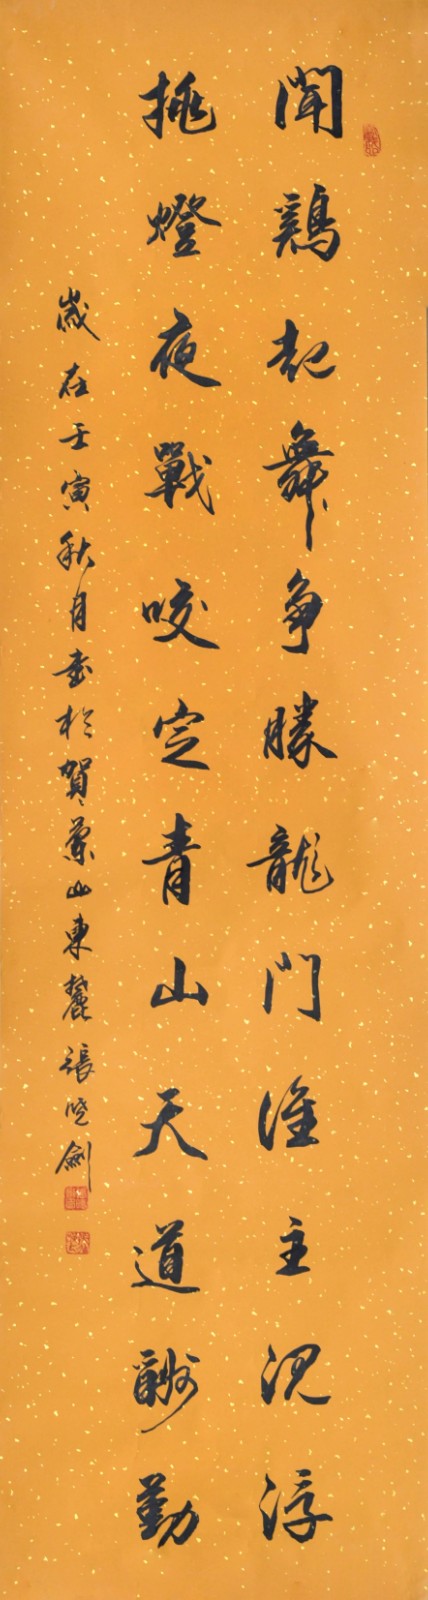 聞鷄起舞争勝龍門誰主沉浮
挑燈夜戰咬定青山天道酬勤
歲在壬寅秋月書於賀蘭山東麓張曉劍